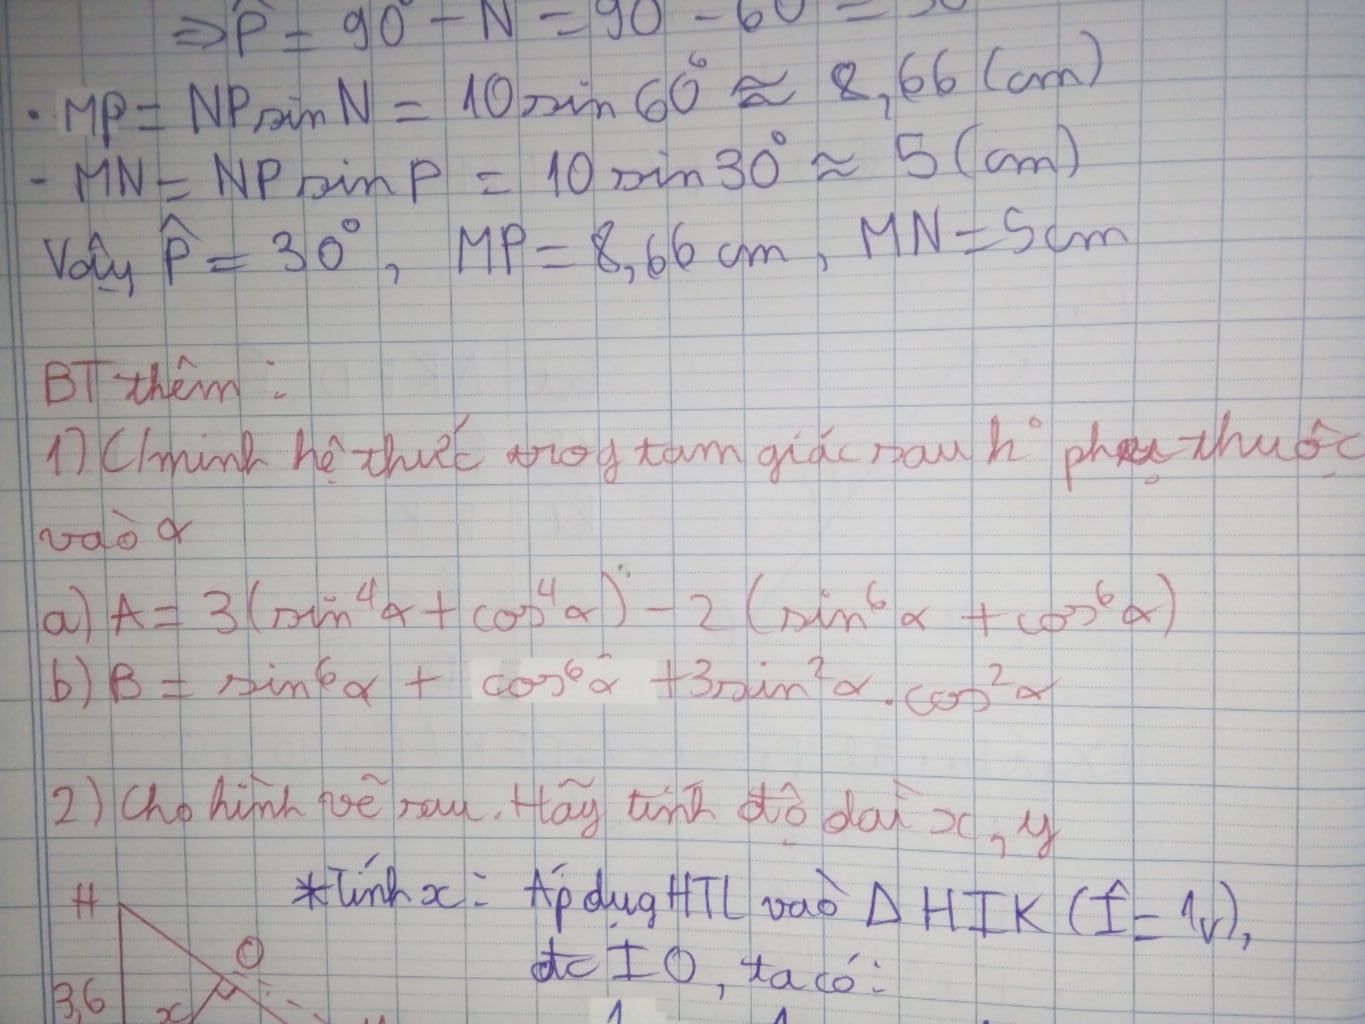 ⇒ P̂ = 90° - N̂ = 90 - 60 = 30
• MP = NP sin N = 10 sin 60° ≈ 8,66 (cm)
- MN = NP sin P = 10 sin 30° ≈ 5 (cm)
Vậy P̂ = 30°, MP = 8,66 cm, MN = 5cm
BT thêm :
1) C/minh hệ thức trog tam giác sau k° phụ thuộc
vào α
a) A = 3(sin⁴α + cos⁴α) - 2 (sin⁶α + cos⁶α)
b) B = sin⁶α + cos⁶α + 3sin²α . cos²α
2) Cho hình vẽ sau. Hãy tính độ dài x, y
*Tính x : Áp dụg HTL vào Δ HIK (Î = 1v),
đc IO, ta có :
H
O
3,6
x
1 1